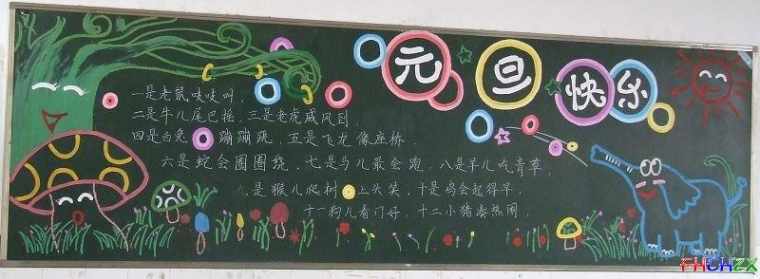 元旦快乐
一是老鼠吱吱叫，
二是牛儿尾巴摇，三是老虎威风到
四是白兔蹦蹦跳，五是飞龙像座桥，
六是蛇会圈圈绕，七是马儿最会跑，八是羊儿吃青草，
九是猴儿爬树上头笑，十是鸡会起得早，
十一狗儿看门好，十二小猪凑热闹，